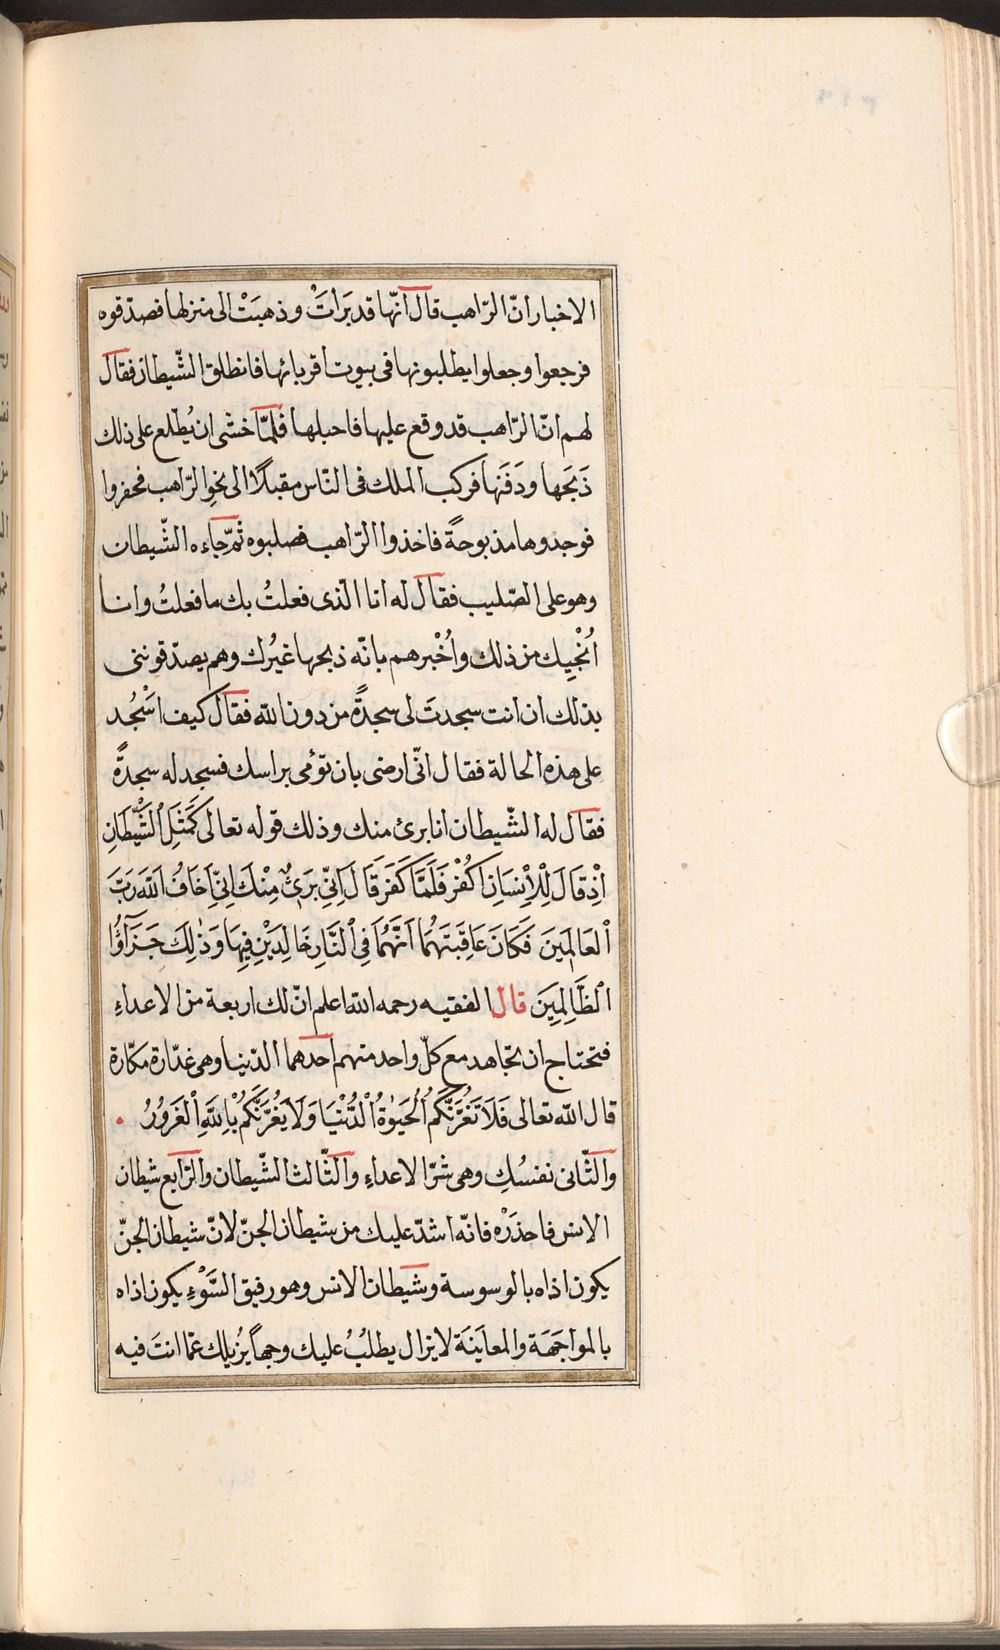 الاخبار انّ الرّاهب قال انّها قد بَرَاَتْ وذهبَتْ الى منزلها فصدّقوه
فرجعوا وجعلوا يطلبونها فى بيوت اقربائها فانطلق الشّيطان فقال
لهم انّ الرّاهب قد وقع عليها فاحبلها فلمّا خشى ان يُطّلع على ذلك
ذبَحها ودَفَنها فركب الملك فى النّاس مقبلًا الى نحو الرّاهب فحفروا
فوجدوها مذبوحةً فاخذوا الرّاهب فصلبوه ثمّ جاءه الشّيطان
وهو على الصّليب فقال له انا الّذى فعلتُ بك ما فعلتُ وانا
اُنْجِيك من ذلك واُخْبرهم بانّه ذبحها غيرُك وهم يصدّقوننى
بذلك ان انت سجدتَ لى سجدةً من دون الله فقال كيف اسْجُد
على هذه الحالة فقال انّى ارضى بان تؤمى براسك فسجد له سجدةً
فقال له الشّيطان انا برئ منك وذلك قوله تعالى كَمَثَلِ الشَّيْطَانِ
اِذْ قَالَ لِلْاِنْسَانِ اكْفُرْ فَلَمَّا كَفَرَ قَالَ اِنِّى بَرِىءٌ مِنْكَ اِنِّى اَخَافُ اللّٰهَ رَبَّ
الْعَالَمِينَ فَكَانَ عَاقِبَتَهُمَا اَنَّهُمَا فِى النَّارِ خَالِدَيْنِ فِيهَا وَذٰلِكَ جَزَآؤُا
الظَّالِمِينَ قال الفقيه رحمه الله اعلم انّ لك اربعة من الاعداءِ
فتحتاج ان تجاهد مع كلّ واحد منهم احدهما الدّنيا وهى غدّارة مكّارة
قال الله تعالى فَلَا تَغُرَّنَّكُمُ الْحَيٰوةُ الدُّنْيَا وَلَا يَغُرَّنَّكُمْ بِاللّٰهِ الْغَرُورُ
والثّانى نفسُك وهى شرّ الاعداءِ والثّالث الشّيطان والرّابع شيطان
الانس فاحذَرْه فانّه اشدّ عليك من شيطان الجنّ لانّ شيطان الجنّ
يكون اذاه بالوسوسة وشيطان الانس وهو رفيق السَّوْءِ يكون اذاه
بالمواجَهَة والمعايَنَة لا يزال يطلبُ عليك وجهًا يزُيلك عمّا انتَ فيه